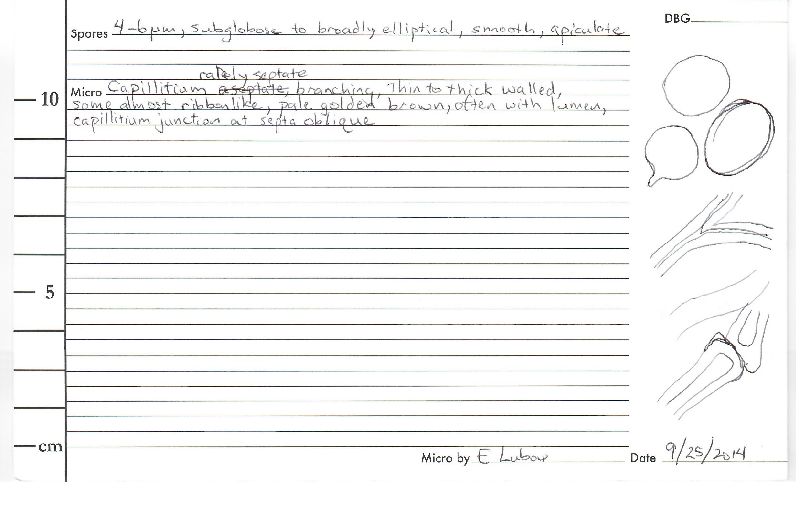 DBG
Spores 4-6µm, subglobose to broadly elliptical, smooth, apiculate
rarely septate
Micro Capillitium aseptate, branching, Thin to thick walled,
10
some almost ribbonlike, pale golden brown, often with lumen,
capillitium junction at septa oblique
5
cm
Micro by E Lubow Date 9/25/2014